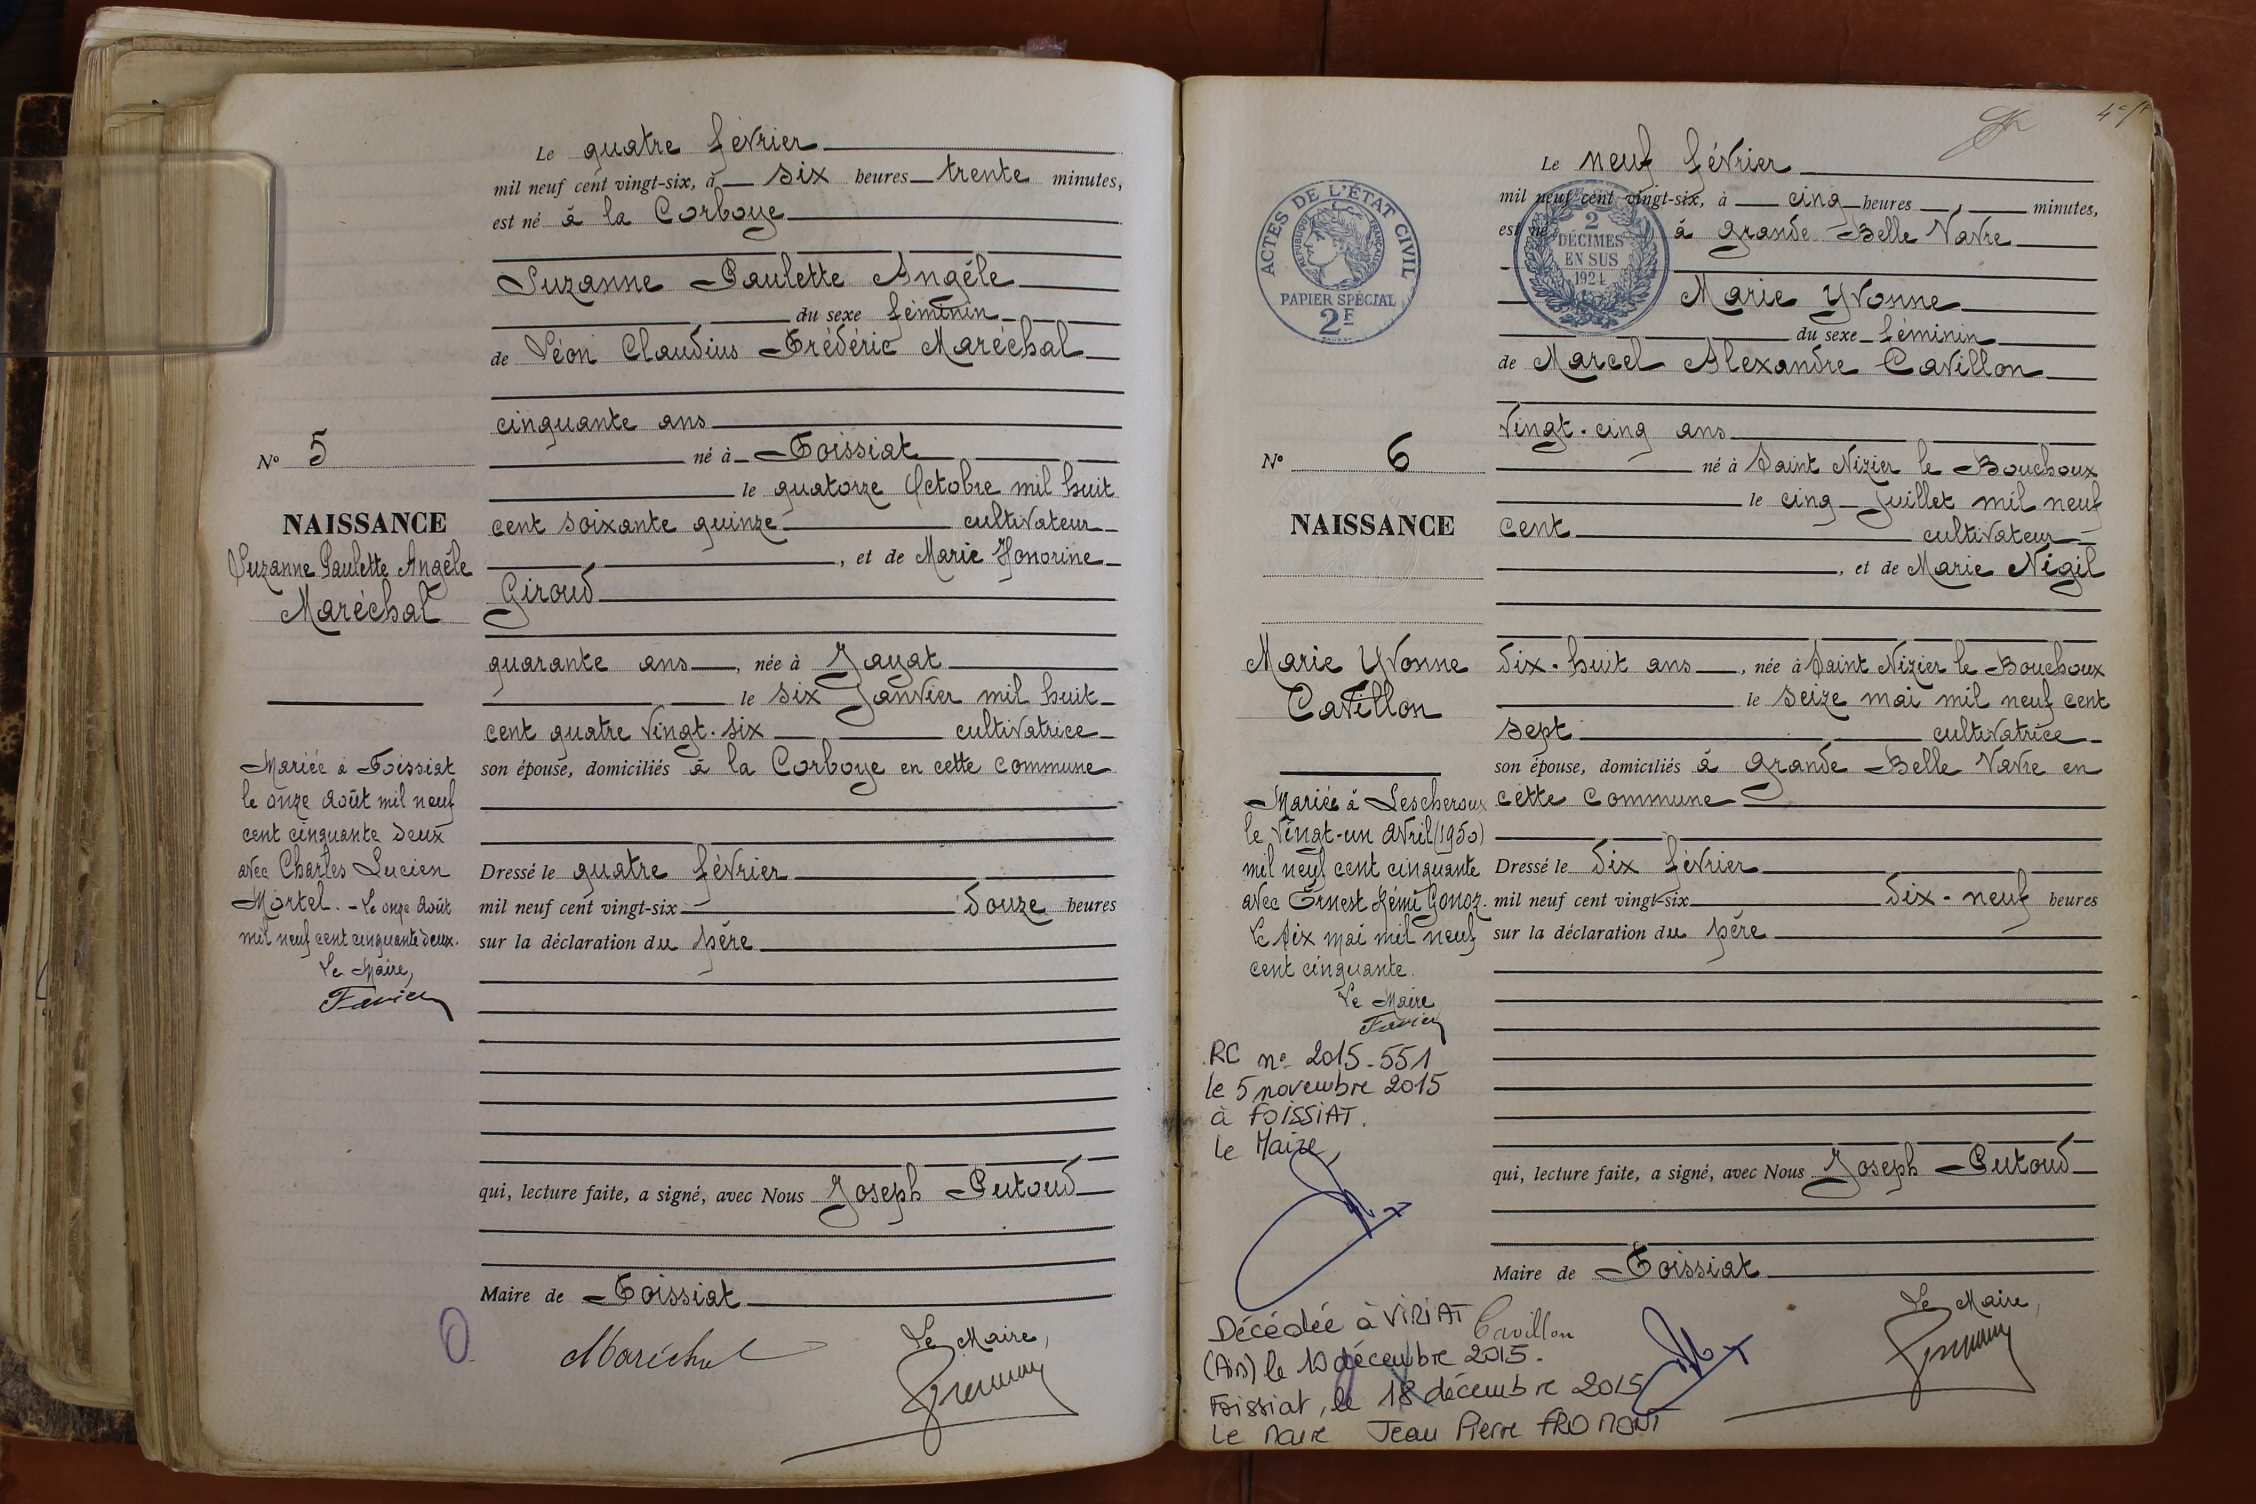 Le quatre février
mil neuf cent vingt-six, à six heures trente minutes,
est né à la Corboye
Suzanne Paulette Angèle
du sexe féminin
de Léon Claudius Frédéric Maréchal
cinquante ans
né à Foissiat
le quatorze Octobre mil huit
cent soixante quinze cultivateur
, et de Marie Honorine
Giroud
quarante ans , née à Jayat
le six Janvier mil huit
cent quatre vingt-six cultivatrice
son épouse, domiciliés à la Corboye en cette commune
Dressé le quatre février
mil neuf cent vingt-six douze heures
sur la déclaration du père
qui, lecture faite, a signé, avec Nous Joseph Putoud
Maire de Foissiat
Maréchal
Le Maire,
N° 5
NAISSANCE
Suzanne Paulette Angèle
Maréchal
Mariée à Foissiat
le onze Août mil neuf
cent cinquante deux
avec Charles Lucien
Mortel. - Le onze Août
mil neuf cent cinquante deux.
Le Maire,
ACTES DE L'ÉTAT CIVIL
RÉPUBLIQUE FRANÇAISE
PAPIER SPÉCIAL
2F
2
DÉCIMES
EN SUS
1924
Le neuf février
mil neuf cent vingt-six, à cinq heures , minutes,
est né à Grande Belle Vavre
Marie Yvonne
du sexe féminin
de Marcel Alexandre Cavillon
Vingt-cinq ans
né à Saint Nizier le Bouchoux
le cinq Juillet mil neuf
cent cultivateur
, et de Marie Nigil
dix-huit ans , née à Saint Nizier le Bouchoux
le seize mai mil neuf cent
sept cultivatrice
son épouse, domiciliés à Grande Belle Vavre en
cette commune
Dressé le dix février
mil neuf cent vingt-six dix-neuf heures
sur la déclaration du père
qui, lecture faite, a signé, avec Nous Joseph Putoud
Maire de Foissiat
Cavillon
Le Maire,
N° 6
NAISSANCE
Marie Yvonne
Cavillon
Mariée à Lescheroux
le vingt-un avril (1950)
mil neuf cent cinquante
avec Ernest Rémi Gonoz.
Le dix mai mil neuf
cent cinquante.
Le Maire
RC n° 2015-551
le 5 novembre 2015
à FOISSIAT.
Le Maire,
Décédée à VIRIAT
(Ain) le 10 décembre 2015.
Foissiat, le 18 décembre 2015
Le Maire Jean Pierre FROMONT